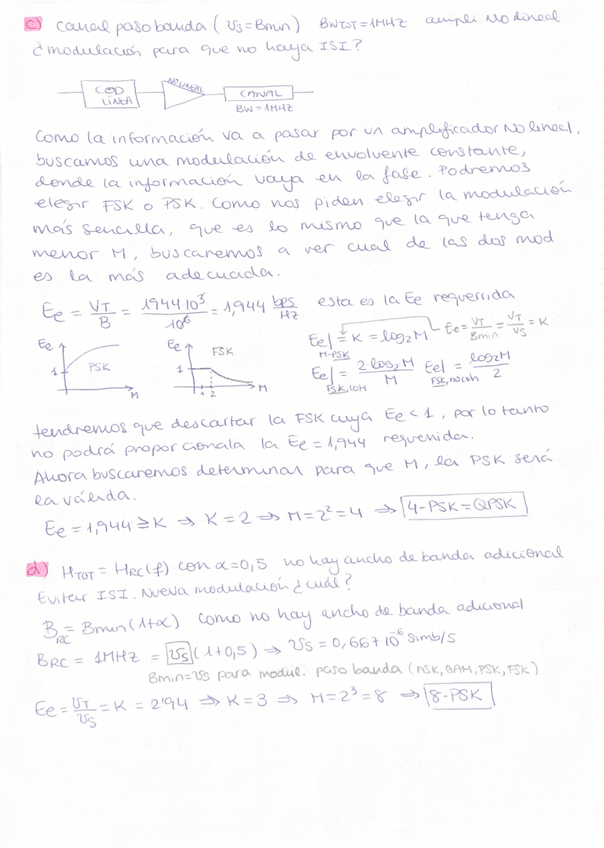 c) canal paso banda (vs = Bmin) BWTOT = 1MHz ampli No lineal
¿modulación para que no haya ISI?
COD LÍNEA
NO LINEAL
CANAL
BW = 1MHz
Como la información va a pasar por un amplificador No lineal,
buscamos una modulación de envolvente constante,
donde la información vaya en la fase. Podremos
elegir FSK o PSK. Como nos piden elegir la modulación
más sencilla, que es lo mismo que la que tenga
menor M, buscaremos a ver cual de las dos mod
es la más adecuada.
Ee = VT/B = 1944·10³/10⁶ = 1,944 bps/Hz esta es la Ee requerida
Ee 1 PSK M
Ee 1 FSK 1 2 M
Ee| M-PSK = K = log2M Ee = VT/Bmin = VT/VS = K
Ee| FSK,COH = 2 log2 M/M Ee| FSK,nocoh = log2M/2
tendremos que descartar la FSK cuya Ee < 1, por lo tanto
no podrá proporcionala la Ee = 1,944 requerida.
Ahora buscaremos determinar para que M, la PSK será
la válida.
Ee = 1,944 ≥ K ⇒ K = 2 ⇒ M = 2² = 4 ⇒ 4-PSK = QPSK
d) HTOT = HRC(f) con α = 0,5 no hay ancho de banda adicional
Evitar ISI. Nueva modulación ¿cuál?
BRC = Bmin (1+α) como no hay ancho de banda adicional
BRC = 1MHz = vs (1+0,5) ⇒ vs = 0,667 10⁻⁶ simb/s
Bmin = vs para modul. paso banda (ASK, QAM, PSK, FSK)
Ee = vT/vs = K = 2'94 ⇒ K = 3 ⇒ M = 2³ = 8 ⇒ 8-PSK